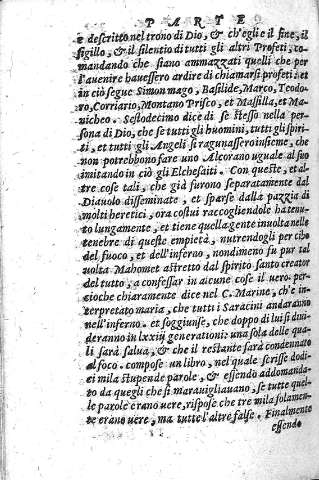 PARTE
è descritto nel trono di Dio, & ch'egli e il fine, il
sigillo, & il silentio di tutti gli altri Profeti, co-
mandando che siano ammazzati quelli che per
l'auenire hauessero ardire di chiamarsi profeti: et
in ciò segue Simon mago, Basilide, Marco, Teodo-
ro, Corriario, Montano Prisco, et Massilla, et Ma-
nicheo. Sestodecimo dice di se stesso nella per-
sona di Dio, che se tutti gli huomini, tutti gli spiri-
ti, et tutti gli Angeli si ragunasser o insieme, che
non potrebbono fare uno Alcorano uguale al suo
imitando in ciò gli Elchesaiti. Con queste, et al-
tre cose tali, che già furono separatamente dal
Diauolo disseminate, et sparse dalla pazzia di
molti heretici, ora costui raccogliendole ha tenu-
to lungamente, et tiene quella gente inuolta nelle
tenebre di queste empietà, nutrendogli per cibo
del fuoco, et dell'inferno, nondimeno fu pur tal
uolta Mahomet astretto dal spirito santo creator
del tutto, a confessar in alcune cose il uero. per-
cioche chiaramente dice nel C. Marine, ch'è in-
terpretato maria, che tutti i Saracini andaranno
nell'inferno. et soggiunse, che doppo di lui si diui-
deranno in lxxiij generationi: una sola delle qua-
li sarà salua, & che il restante sarà condennato
al foco. compose un libro, nel quale scrisse dodi-
ci mila stupende parole, & essendo addomanda-
to da quegli che si marauigliauano, se tutte quel-
le parole erano uere, rispose che tre mila solamen-
te erano uere, ma tutte l'altre false. Finalmente
essendo